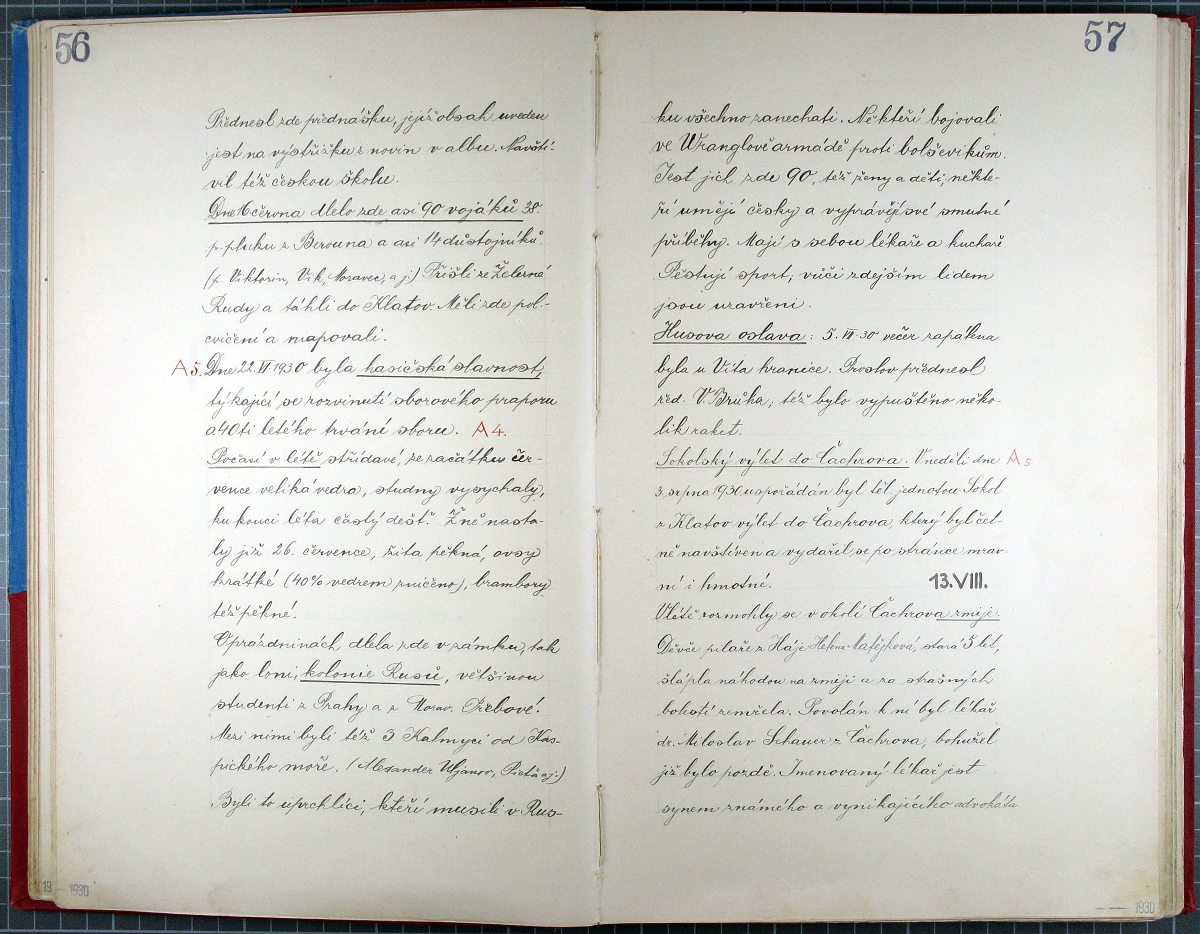 56
Přednesl zde přednášku, jejíž obsah uveden
jest na výstřižku z novin v albu. Navští-
vil též českou školu.
Dne 16 června dlelo zde asi 90 vojáků 38.
p. pluku z Berouna a asi 14 důstojníků.
(p. Viktorin, Vik, Moravec, a j.) Přišli ze Železné
Rudy a táhli do Klatov. Měli zde pol.-
cvičení a mapovali.
A5. Dne 22. VI 1930 byla hasičská slavnost,
týkající se rozvinutí sborového praporu
a 40ti letého trvání sboru. A4.
Počasí v létě střídavé, ze začátku čer-
vence veliká vedra, studny vysychaly,
ku konci léta častý déšť. Žně nasta-
ly již 26. července, žita pěkná, ovsy
krátké (40% vedrem zničeno), brambory
též pěkné.
O prázdninách dlela zde v zámku, tak
jako loni, kolonie Rusů, většinou
studenti z Prahy a z Morav. Třebové.
Mezi nimi byli též 3 Kalmyci od Kas-
pického moře. (Alexander Uljanov, aj.)
Byli to uprchlíci, kteří musili v Rus-
19 — 1930
57
ku všechno zanechati. Někteří bojovali
ve Wranglově armádě proti bolševikům.
Jest jich zde 90, též ženy a děti, někte-
ří umějí česky a vyprávějí své smutné
příběhy. Mají s sebou lékaře a kuchaře
Pěstují sport, vůči zdejším lidem
jsou uzavřeni.
Husova oslava: 5. VII. 30 večer zapálena
byla u Víta hranice. Proslov přednesl
řed. V. Bruha, též bylo vypuštěno něko-
lik raket.
Sokolský výlet do Čachrova. V neděli dne A5.
3. srpna 1930 uspořádán byl těl. jednotou Sokol
z Klatov výlet do Čachrova, který byl čet-
ně navštíven a vydařil se po stránce mrav-
ní i hmotné. 13.VIII.
V létě rozmohly se v okolí Čachrova zmije.
Děvče pilaře z Háje Helena Matějková, stará 5 let,
šlápla náhodou na zmiji a za strašných
bolestí zemřela. Povolán k ní byl lékař
dr. Miloslav Schauer z Čachrova, bohužel
již bylo pozdě. Jmenovaný lékař jest
synem známého a vynikajícího advokáta
— 1930